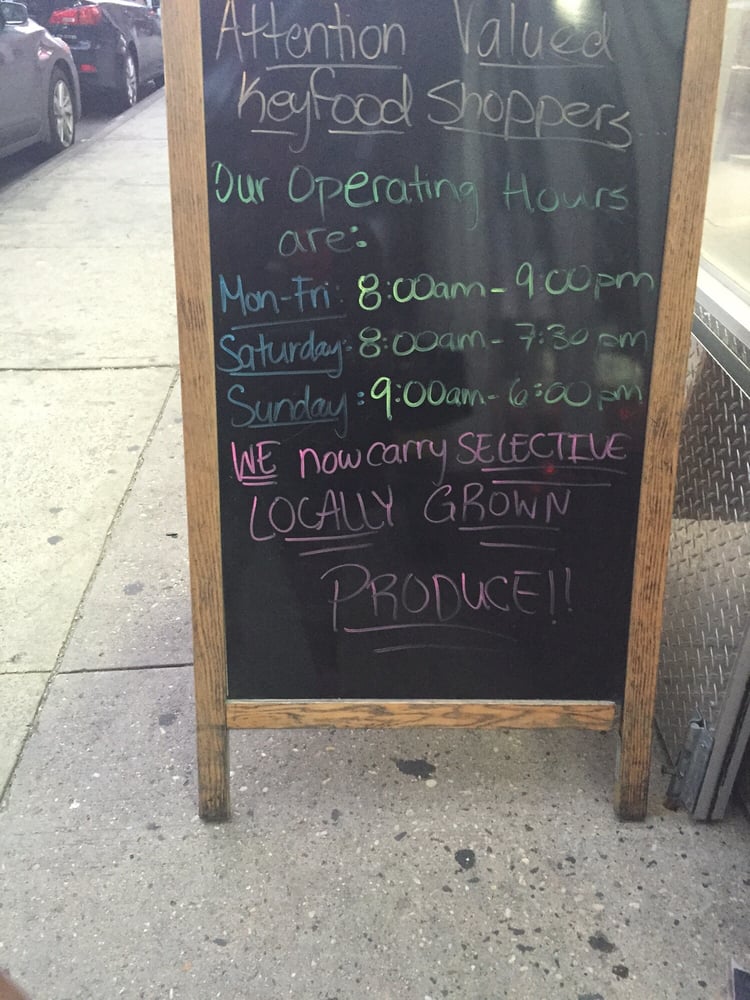 Attention Valued
Keyfood Shoppers
Our Operating Hours
are:
Mon-Fri: 8:00am - 9:00pm
Saturday: 8:00am - 7:30pm
Sunday: 9:00am - 6:00pm
WE now carry SELECTIVE
LOCALLY GROWN
PRODUCE!!